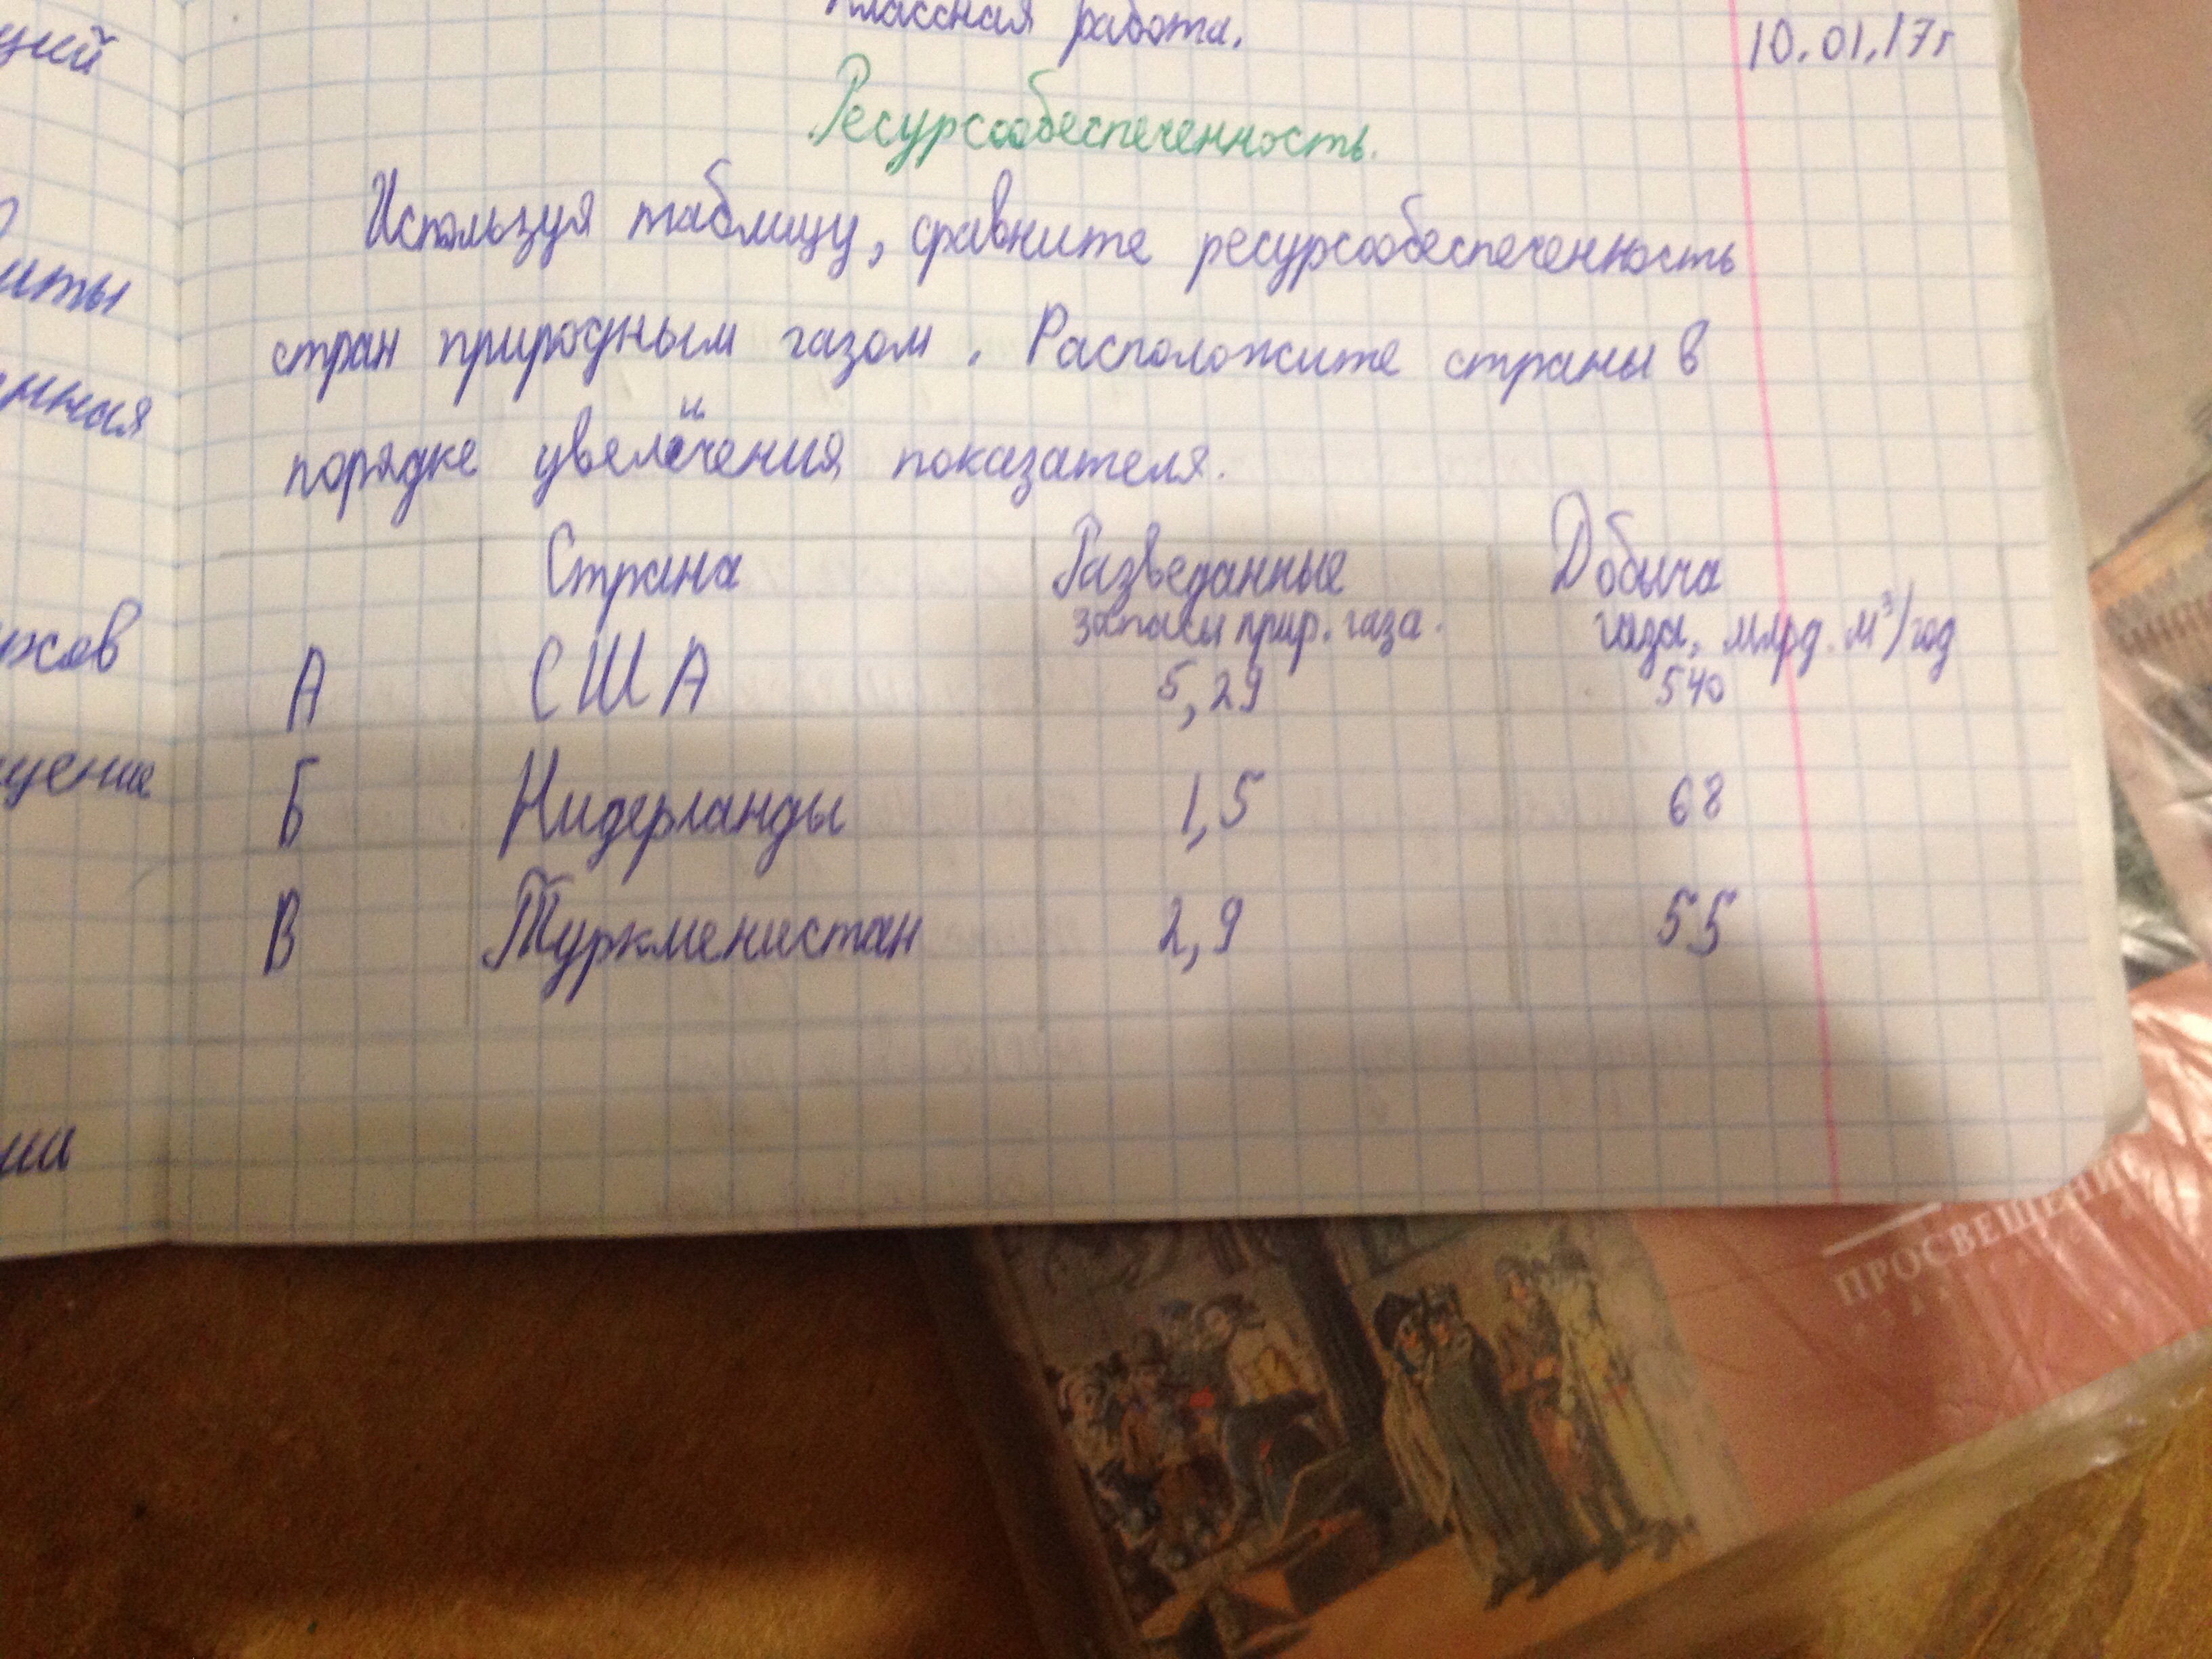 Классная работа.
10.01.17г
Ресурсообеспеченность.
Используя таблицу, сравните ресурсообеспеченность
стран природным газом. Расположите страны в
порядке увеличения показателя.
Страна Разведанные Добыча
запасы прир. газа. газа, млрд. м³/год
А США 5,29 540
Б Нидерланды 1,5 68
В Туркменистан 2,9 55
ПРОСВЕЩЕНИЕ